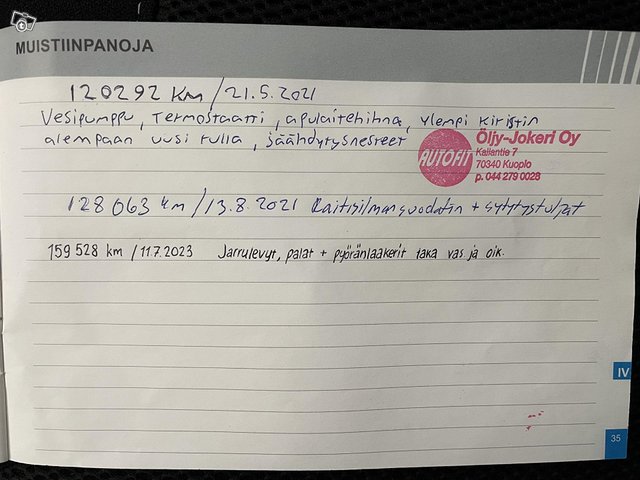 MUISTIINPANOJA
120292 km / 21.5.2021
Vesipumppu, Termostaatti, apulaitehihna, ylempi kiristin
alempaan uusi rulla, jäähdytysnesteet
AUTOFIT
Öljy-Jokeri Oy
Kallantie 7
70340 Kuopio
p. 044 279 0028
128 063 km / 13.8.2021 Raitisilmansuodatin + sytytystulpat
159 528 km / 11.7.2023 Jarrulevyt, palat + pyöränlaakerit taka vas ja oik.
IV
35